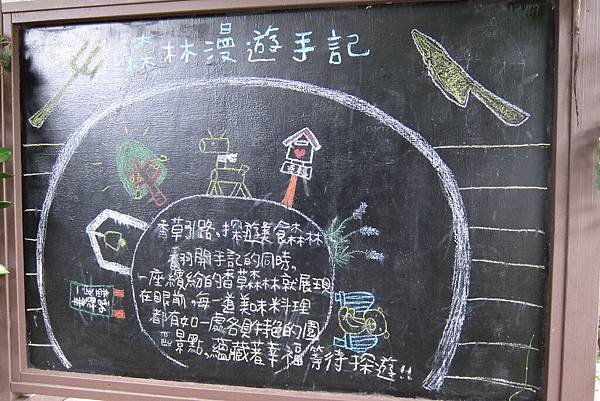 森林漫遊手記
香草引路、探遊美食森林
翻開手記的同時,
一座繽紛的香草森林就展現
在眼前,每一道美味料理
都有如一處各具特色的園
區景點,蘊藏著幸福等待探遊!!